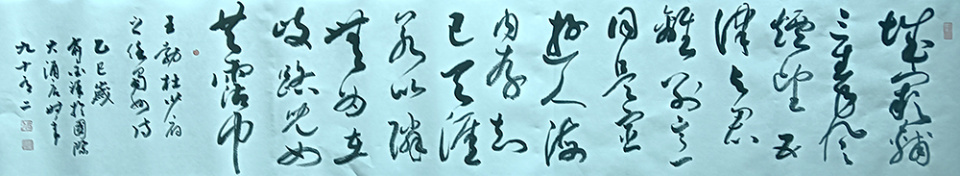 城闕輔
三秦風
煙望五
津與君
離別意
同是宦
遊人海
內存知
己天涯
若比隣
無為在
岐路兒女
共霑巾
王勃杜少府
之任蜀州詩
乙巳歲
於國際
大
九十有二